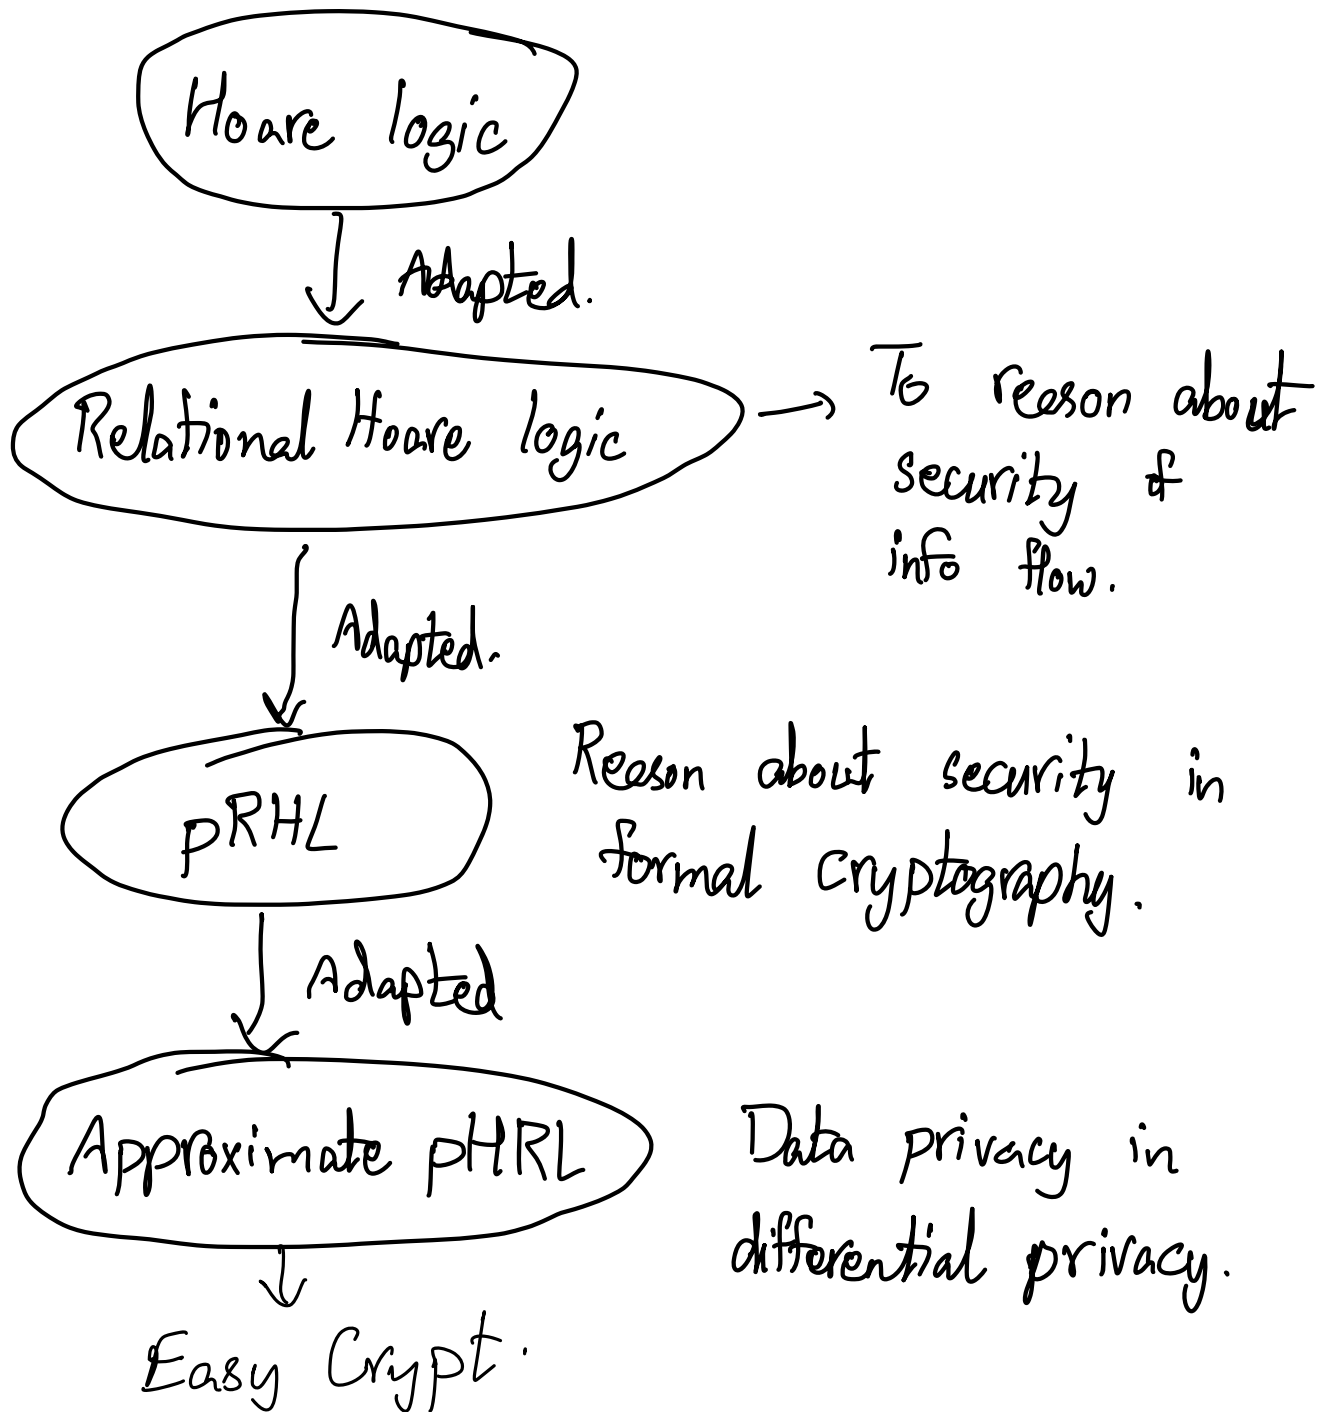 Hoare logic
Adapted.
Relational Hoare logic
To reason about
security of
info flow.
Adapted.
pRHL
Reason about security in
formal cryptography.
Adapted
Approximate pHRL
Data privacy in
differential privacy.
Easy Crypt.